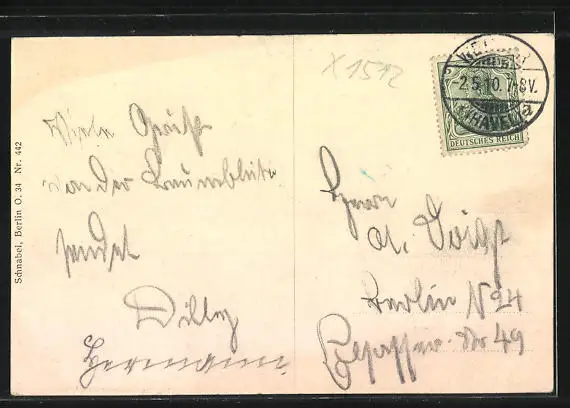 X1512
-2.5.10.7-8V.
(HAVEL) a
DEUTSCHES REICH
Schnabel, Berlin O. 34 Nr. 442
Viele Grüße
von der Baumblüte
sendet
Willy
Hermann
Herrn
A. Voigt
Berlin N 24
Elsasser Str 49